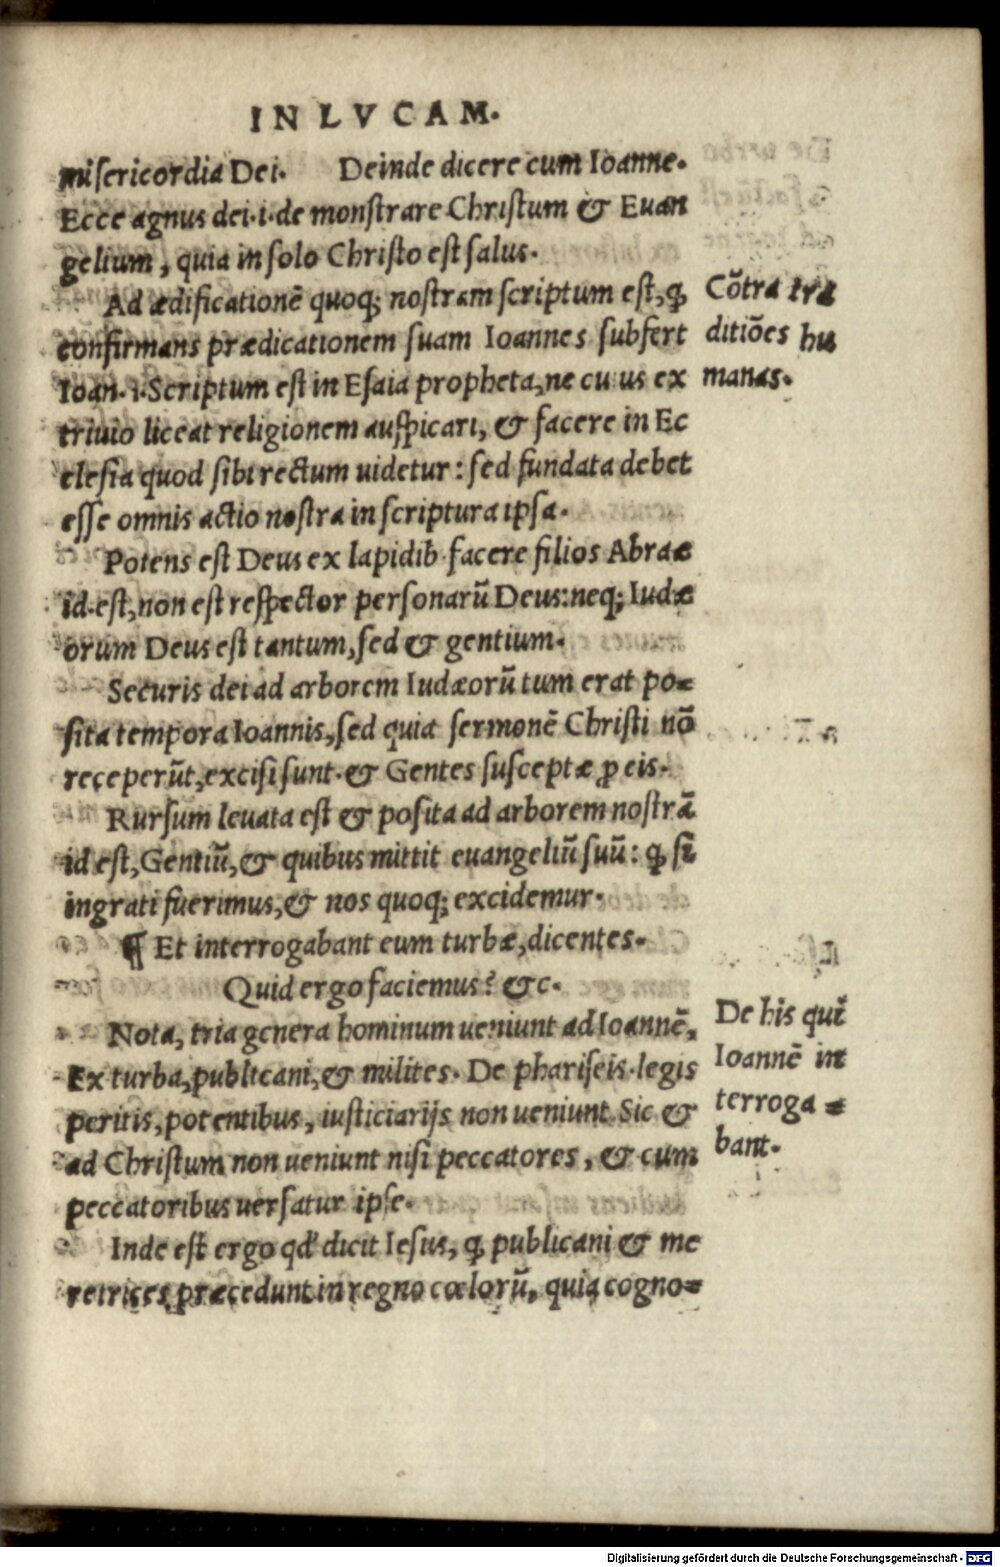 IN LVCAM.
misericordia Dei. Deinde dicere cum Ioanne.
Ecce agnus dei .i. de monstrare Christum & Euan
gelium, quia in solo Christo est salus.
Ad ædificationē quoq; nostram scriptum est, ꝙ
confirmans prædicationem suam Ioannes subfert
Ioan. 1. Scriptum est in Esaia propheta, ne cuius ex
triuio liceat religionem auspicari, & facere in Ec
clesia quod sibi rectum uidetur: sed fundata debet
esse omnis actio nostra in scriptura ipsa.
Cōtra tra
ditiōes hu
manas.
Potens est Deus ex lapidib. facere filios Abraæ
id.est, non est respector personarū Deus: neq; Iudæ
orum Deus est tantum, sed & gentium.
Securis dei ad arborem Iudæorū tum erat po-
sita tempora Ioannis, sed quia sermonē Christi nō
receperūt, excisi sunt. & Gentes susceptæ ꝓ eis.
Rursum leuata est & posita ad arborem nostrā
id est, Gentiū, & quibus mittit euangeliū suū: ꝙ si
ingrati fuerimus, & nos quoq; excidemur.
¶ Et interrogabant eum turbæ, dicentes.
Quid ergo faciemus? &c.
Nota, tria genera hominum ueniunt ad Ioannē,
Ex turba, publicani, & milites. De phariseis. legis
peritis, potentibus, iusticiarijs non ueniunt. Sic &
ad Christum non ueniunt nisi peccatores, & cum
peccatoribus uersatur ipse.
De his qui
Ioannē in
terroga-
bant.
Inde est ergo qd' dicit Iesus, ꝙ publicani & me
retrices præcedunt in regno cœlorū, quia cogno-
Digitalisierung gefördert durch die Deutsche Forschungsgemeinschaft - DFG